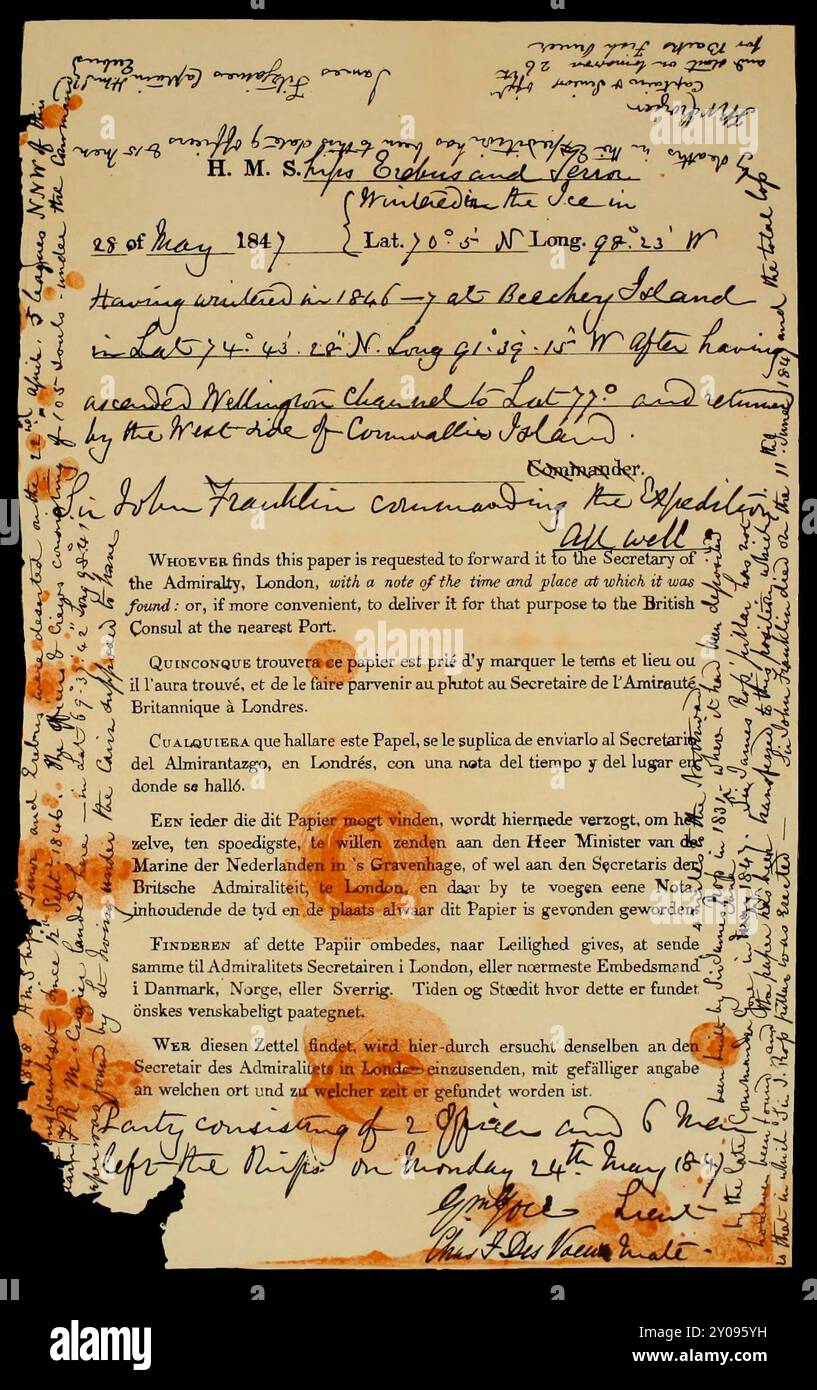 H. M. S.hips Erebus and Terror
{Wintered in the Ice in
28 of May 1847 {Lat. 70° 5' N Long. 98° 23' W
Having wintered in 1846–7 at Beechey Island
in Lat 74° 43' 28" N. Long 91° 39' 15" W After having
ascended Wellington Channel to Lat 77° and returned
by the West side of Cornwallis Island.
Commander.
Sir John Franklin commanding the Expedition
All well
WHOEVER finds this paper is requested to forward it to the Secretary of
the Admiralty, London, with a note of the time and place at which it was
found: or, if more convenient, to deliver it for that purpose to the British
Consul at the nearest Port.
QUINCONQUE trouvera ce papier est prié d'y marquer le tems et lieu ou
il l'aura trouvé, et de le faire parvenir au plutot au Secretaire de l'Amirauté
Britannique à Londres.
CUALQUIERA que hallare este Papel, se le suplica de enviarlo al Secretario
del Almirantazgo, en Londrés, con una nota del tiempo y del lugar en
donde se halló.
EEN ieder die dit Papier mogt vinden, wordt hiermede verzogt, om het
zelve, ten spoedigste, te willen zenden aan den Heer Minister van de
Marine der Nederlanden in 's Gravenhage, of wel aan den Secretaris der
Britsche Admiraliteit, te London, en daar by te voegen eene Nota,
inhoudende de tyd en de plaats alwaar dit Papier is gevonden geworden
FINDEREN af dette Papiir ombedes, naar Leilighed gives, at sende
samme til Admiralitets Secretairen i London, eller nœrmeste Embedsmand
i Danmark, Norge, eller Sverrig. Tiden og Stœdit hvor dette er fundet
önskes venskabeligt paategnet.
WER diesen Zettel findet, wird hier-durch ersucht denselben an den
Secretair des Admiralitets in London einzusenden, mit gefälliger angabe
an welchen ort und zu welcher zeit er gefundet worden ist.
Party consisting of 2 Officers and 6 Men
left the Ships on Monday 24th May 1847
Gm Gore Lieut
Chas F Des Voeux Mate.
1848 HMShips Terror and Erebus were deserted on the 22nd April. 5 leagues NNW of this
having been beset since 12th Septr 1846. The Officers & Crews consisting of 105 souls under the Command
F R M Crozier landed here – in Lat 69° 37' 42" Long 98° 41'
paper was found by Lt Irving under the Cairn supposed to have
been built by Sir James Ross in 1831 – where it had been deposited
4 miles to the Northward
by the late Commander Gore in June 1847. Sir James Ross' pillar has not
however been found and the paper has been transferred to this position which
is that in which Sir J. Ross' pillar was erected – Sir John Franklin died on the 11th June 1847 and the total loss
by deaths in the Expedition has been to this date 9 officers & 15 men
James Fitzjames Captain HMS Erebus
F R M Crozier
Captain & Senior Offr
and start on tomorrow 26th
for Backs Fish River
alamy
a
Image ID: 2Y095YH
www.alamy.com